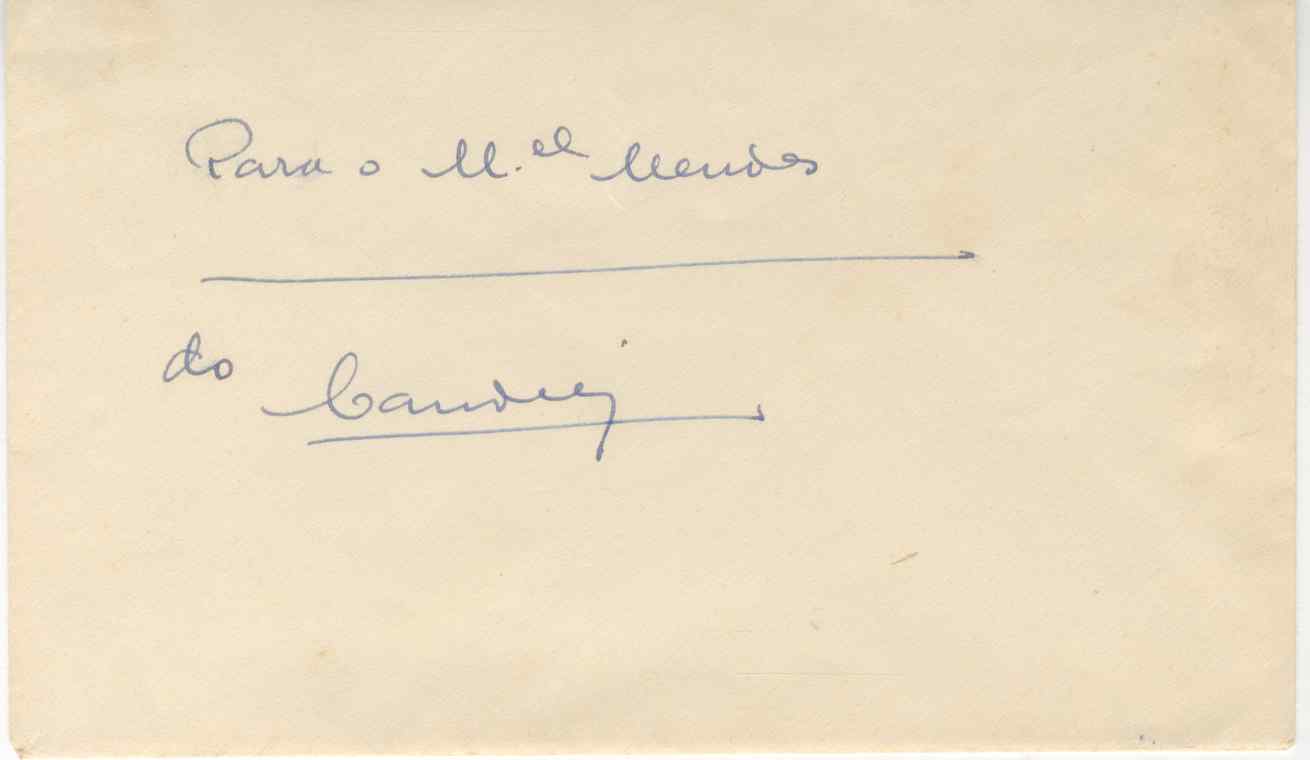 Para o M.el Mendes
do